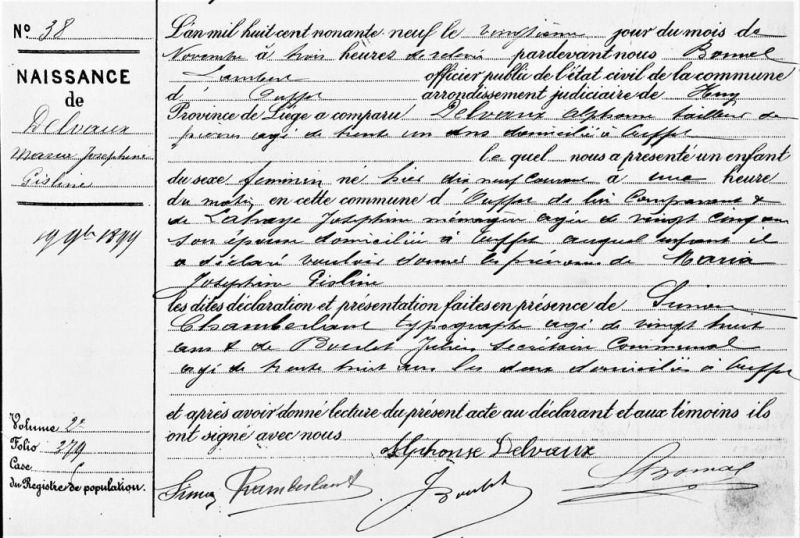 N° 38
NAISSANCE
de
Delvaux
Maria Joséphine
Gisline
19 9bre 1899
Volume 2e
Folio 279
Case
du Registre de population.
L'an mil huit cent nonante neuf le vingtième jour du mois de
Novembre à trois heures de relevé pardevant nous Bomal
Lambert officier public de l'état civil de la commune
d'Ouffet arrondissement judiciaire de Huy
Province de Liège a comparu Delvaux Alphonse tailleur de
pierres agé de trente un ans domicilié à Ouffet
le quel nous a présenté un enfant
du sexe féminin né hier dix neuf courant à une heure
du matin en cette commune d'Ouffet de lui Comparant &
de Lahaye Joséphine ménagère agée de vingt cinq ans
son épouse domiciliée à Ouffet auquel enfant il
a déclaré vouloir donner les prénoms de Maria
Joséphine Gisline
les dites déclaration et présentation faites en présence de Simon
Chamberlant typographe agé de vingt huit
ans & de Boulet Julien Secrétaire Communal
agé de trente huit ans les deux domiciliés à Ouffet
et après avoir donné lecture du présent acte au déclarant et aux témoins ils
ont signé avec nous
Alphonse Delvaux
Simon Chamberlant J Boulet LBomal